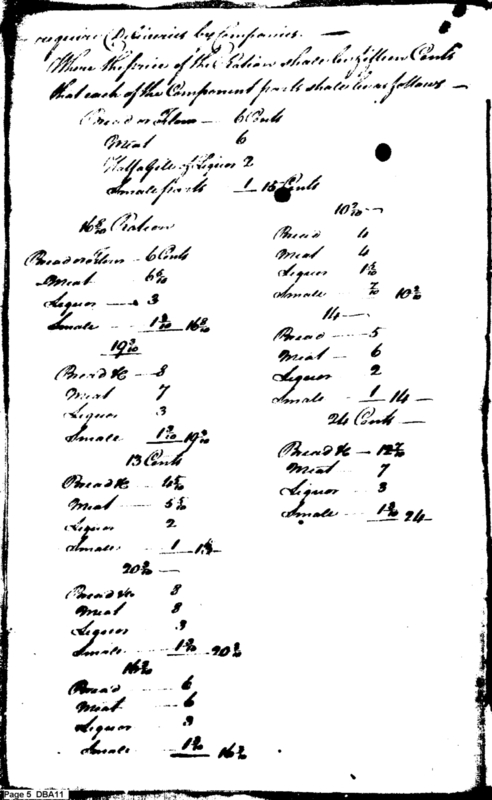 require Deliveries by Companies. —
Where the price of the Ration shall be fifteen Cents
that each of the Component parts shall be as follows —
Bread or Flour — 6 Cents
Meat 6
Half a Gill of Liquor 2
Small parts 1 15 Cents
16 8/10 Ration
Bread or Flour - 6 Cents
Meat 6
Liquor 3
Small 1 16
19
Bread &c - 8
Meat 7
Liquor 3
Small 1 19
13 Cents
Bread &c 4 5/10
Meat 5 5/10
Liquor 2
Small 1 13
20 —
Bread &c 8
Meat 8
Liquor 3
Small 1 20
16
Bread 6
Meat 6
Liquor 3
Small 1 16
10 —
Bread 4
Meat 4
Liquor 1
Small 7/10 10
14 —
Bread 5
Meat 6
Liquor 2
Small 1 14 —
24 Cents —
Bread &c — 12 7/10
Meat 7
Liquor 3
Small 1 24
Page 5 DBA11